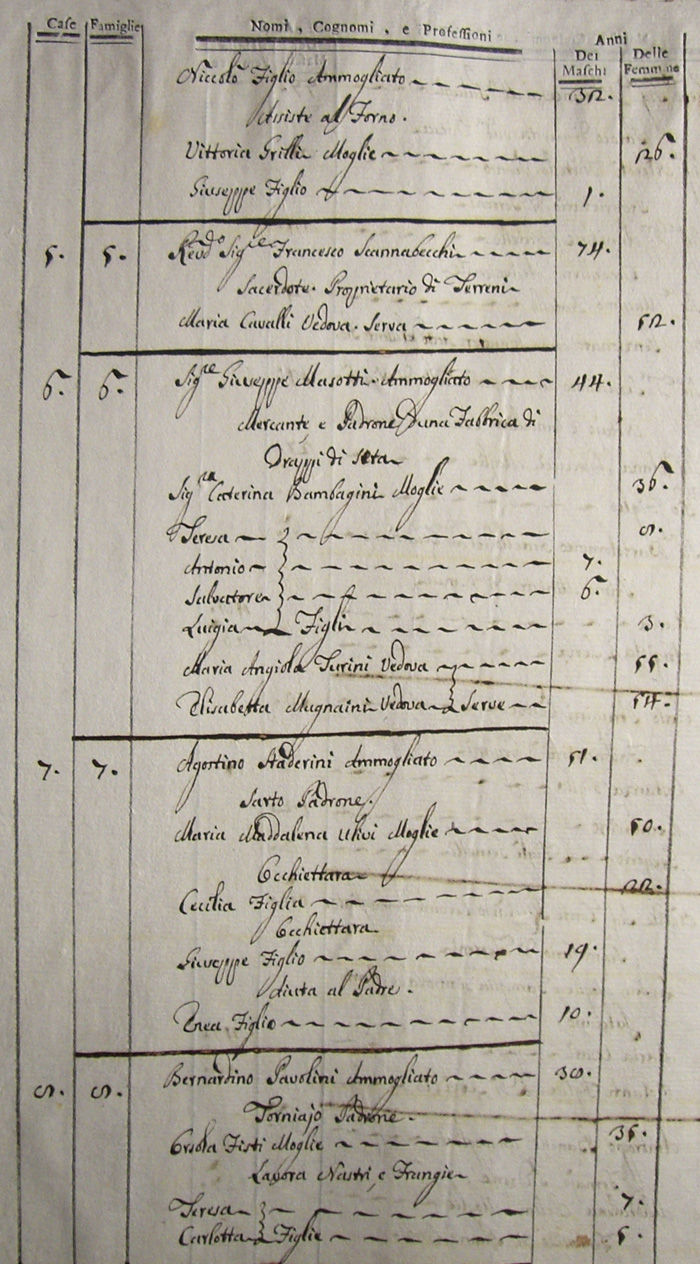 Case Famiglie Nomi, Cognomi, e Professioni Anni
Dei Maschi Delle Femmine
Niccolò Figlio Ammogliato 32.
Assiste al Forno.
Vittoria Grilli Moglie 26.
Giuseppe Figlio 1.
5. 5. Revdo Sigre Francesco Scannabecchi 74.
Sacerdote. Proprietario di Terreni
Maria Cavalli Vedova. Serva 52.
6. 6. Sigre Giuseppe Masotti. Ammogliato 44.
Mercante e Padrone d'una Fabbrica di
Drappi di Seta
Sigra Caterina Bambagini Moglie 36.
Teresa 8.
Antonio 7.
Salvatore 6.
Luigia Figli 3.
Maria Angiola Turini Vedova 55.
Elisabetta Mugnaini Vedova Serve 54.
7. 7. Agostino Staderini Ammogliato 51.
Sarto Padrone.
Maria Maddalena Ulivi Moglie 50.
Occhiettara
Cecilia Figlia 22.
Occhiettara
Giuseppe Figlio 19.
Aiuta al Padre.
Enea Figlio 10.
8. 8. Bernardino Pavolini Ammogliato 38.
Torniajo Padrone.
Orsola Fisti Moglie 35.
Lavora Nastri, e Frangie
Teresa 7.
Carlotta Figlie 5.